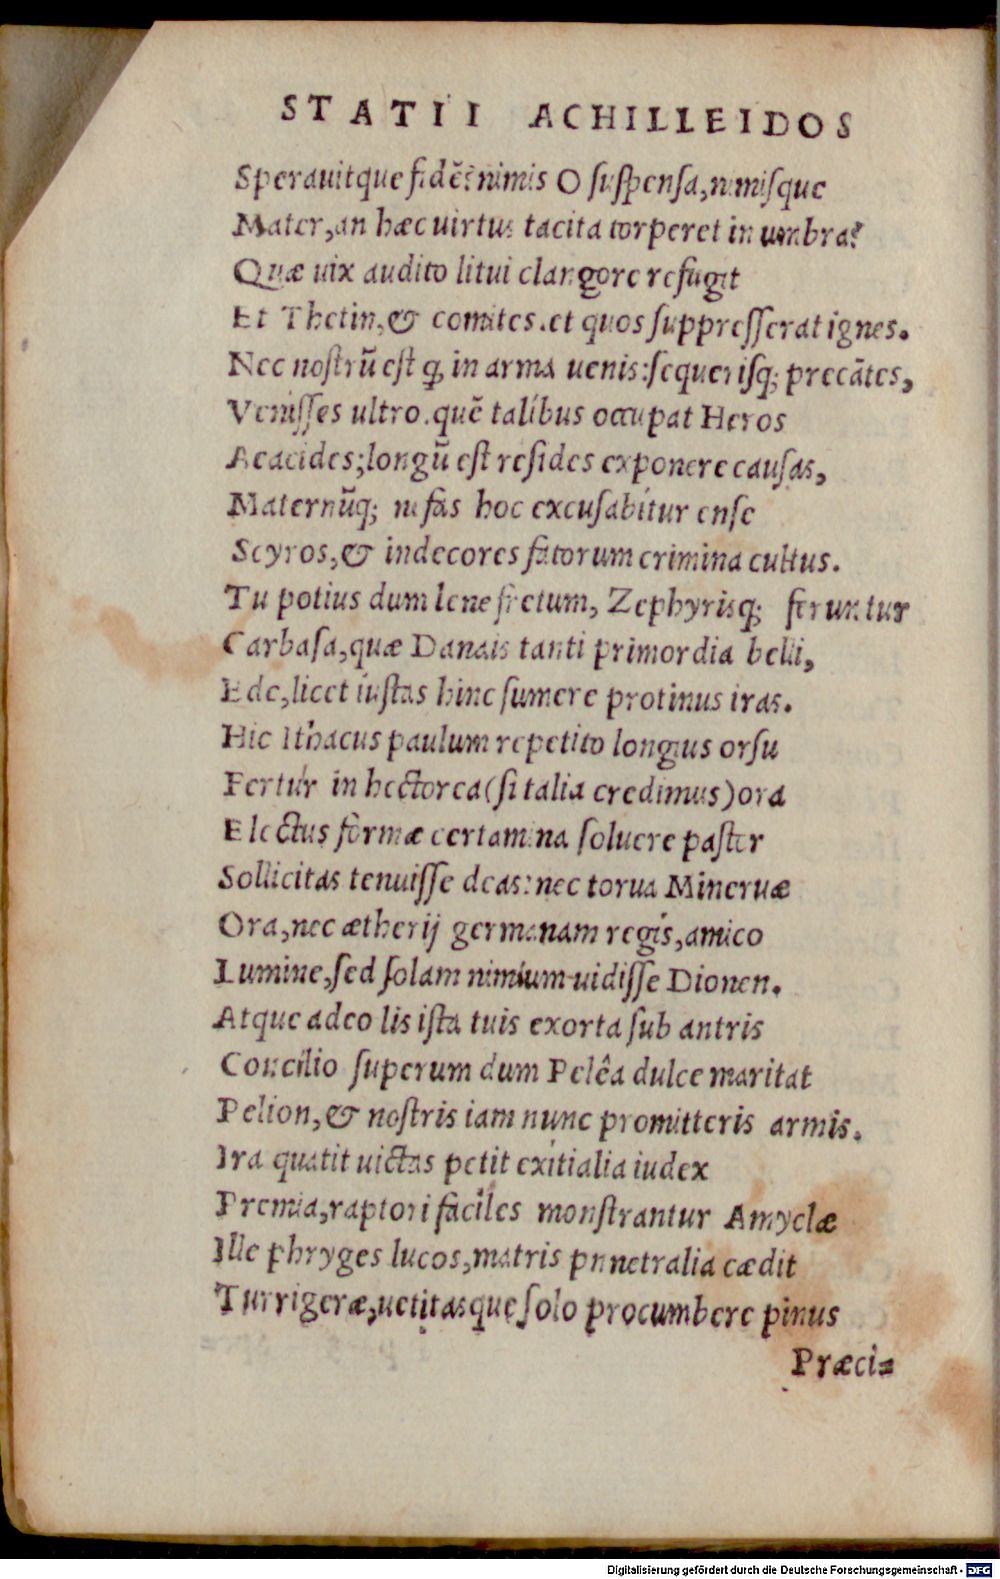 STATII ACHILLEIDOS
Sperauitque fidē? nimis O suspensa, nimisque
Mater, an hæc uirtus tacita torperet in umbra?
Quæ uix audito litui clangore refugit
Et Thetin, & comites. et quos suppresserat ignes.
Nec nostrū est q̃ in arma uenis: sequerisq; precātes,
Venisses ultro. quē talibus occupat Heros
Aeacides; longū est resides exponere causas,
Maternūq; nefas hoc excusabitur ense
Scyros, & indecores fatorum crimina cultus.
Tu potius dum lene fretum, Zephyrisq; feruntur
Carbasa, quæ Danais tanti primordia belli,
Ede, licet iustas hinc sumere protinus iras.
Hic Ithacus paulum repetito longius orsu
Fertur in hectorea (si talia credimus) ora
Electus formæ certamina soluere pastor
Sollicitas tenuisse deas: nec torua Mineruæ
Ora, nec ætherij germanam regis, amico
Lumine, sed solam nimium uidisse Dionen.
Atque adeo lis ista tuis exorta sub antris
Concilio superum dum Pelêa dulce maritat
Pelion, & nostris iam nunc promitteris armis.
Ira quatit uictas petit exitialia iudex
Premia, raptori faciles monstrantur Amyclæ
Ille phryges lucos, matris pnnetralia cædit
Turrigeræ, uetitasque solo procumbere pinus
Præci=
Digitalisierung gefördert durch die Deutsche Forschungsgemeinschaft - DFG